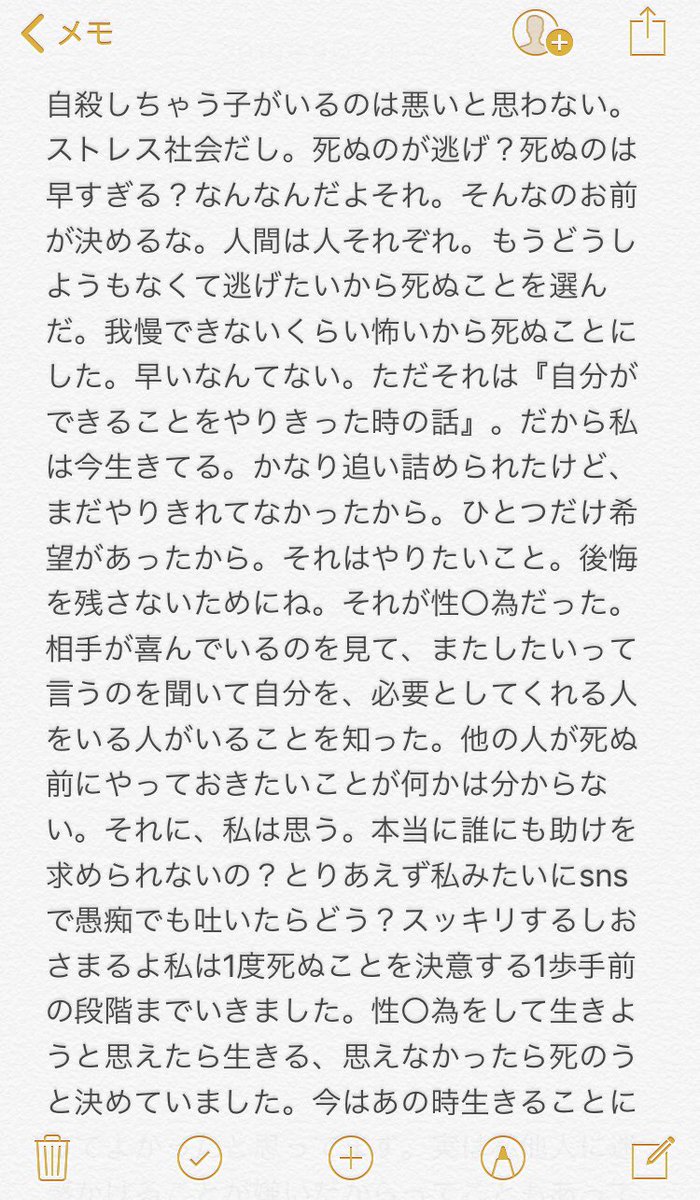 メモ
自殺しちゃう子がいるのは悪いと思わない。
ストレス社会だし。死ぬのが逃げ？死ぬのは
早すぎる？なんなんだよそれ。そんなのお前
が決めるな。人間は人それぞれ。もうどうし
ようもなくて逃げたいから死ぬことを選ん
だ。我慢できないくらい怖いから死ぬことに
した。早いなんてない。ただそれは『自分が
できることをやりきった時の話』。だから私
は今生きてる。かなり追い詰められたけど、
まだやりきれてなかったから。ひとつだけ希
望があったから。それはやりたいこと。後悔
を残さないためにね。それが性〇為だった。
相手が喜んでいるのを見て、またしたいって
言うのを聞いて自分を、必要としてくれる人
をいる人がいることを知った。他の人が死ぬ
前にやっておきたいことが何かは分からな
い。それに、私は思う。本当に誰にも助けを
求められないの？とりあえず私みたいにsns
で愚痴でも吐いたらどう？スッキリするしお
さまるよ私は1度死ぬことを決意する1歩手前
の段階までいきました。性〇為をして生きよ
うと思えたら生きる、思えなかったら死のう
と決めていました。今はあの時生きることに